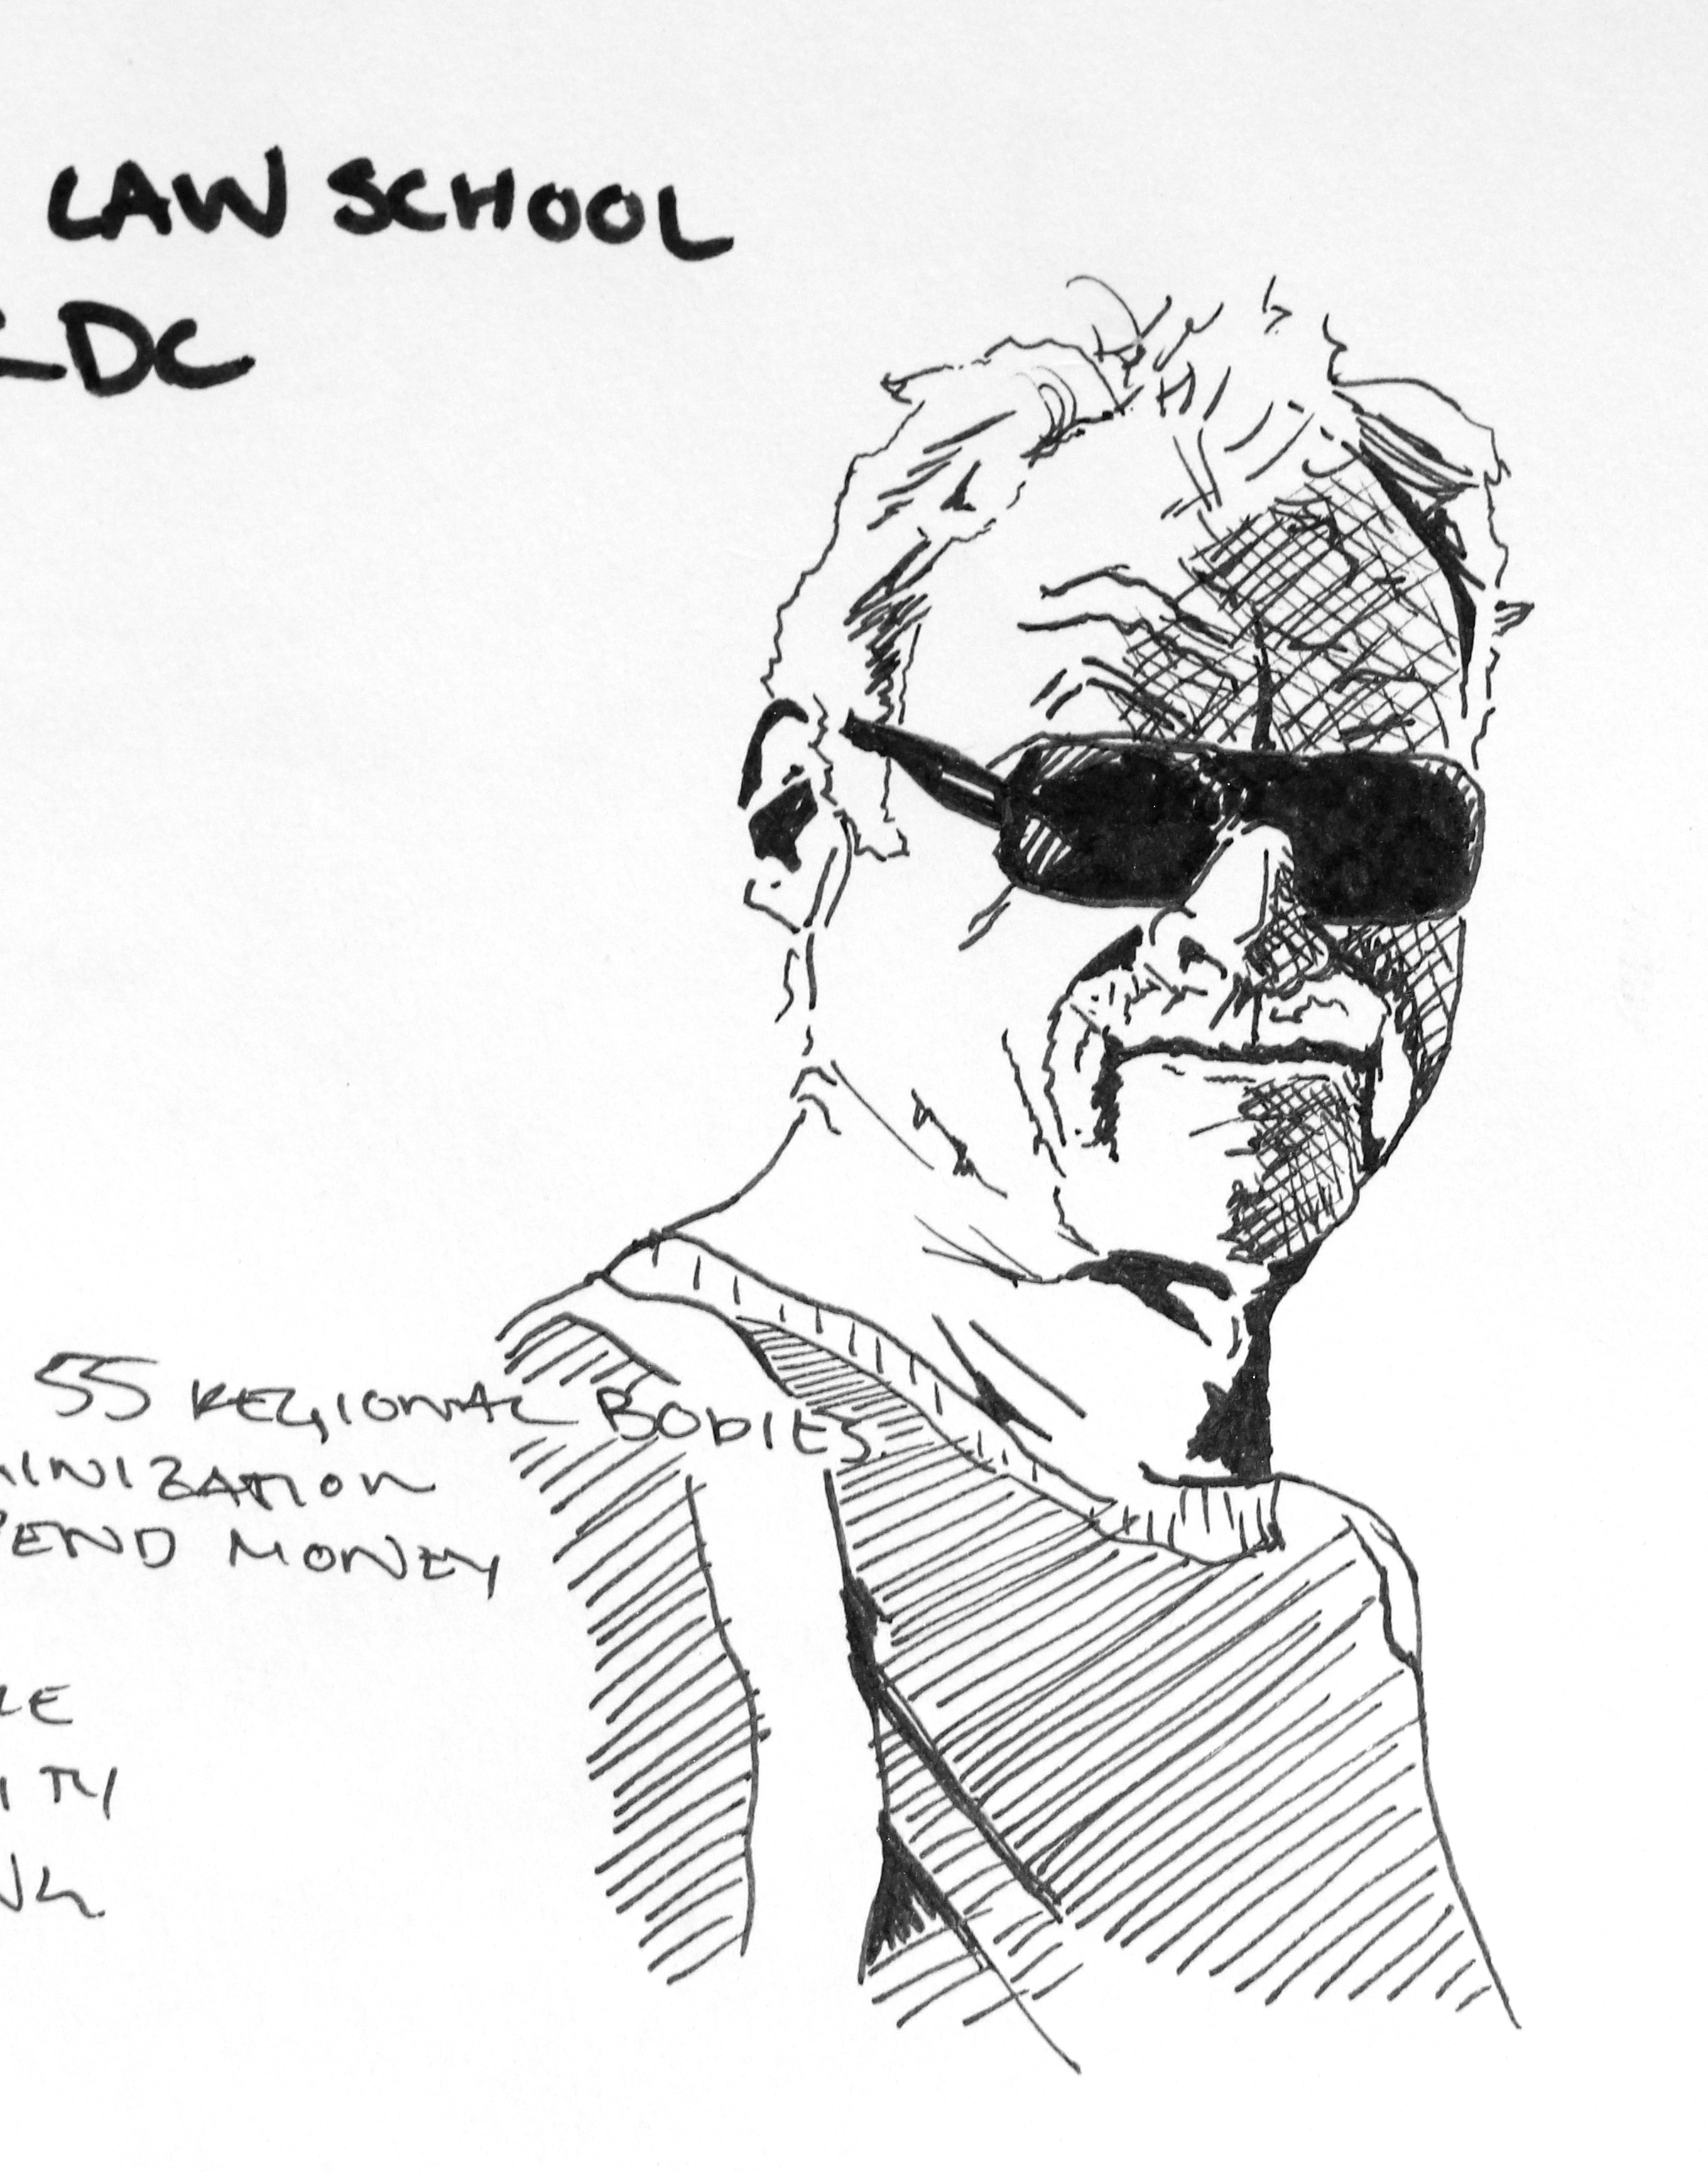 LAW SCHOOL
LDC
55 REGIONAL BODIES
MINIZATION
PEND MONEY
RE
ITY
NG